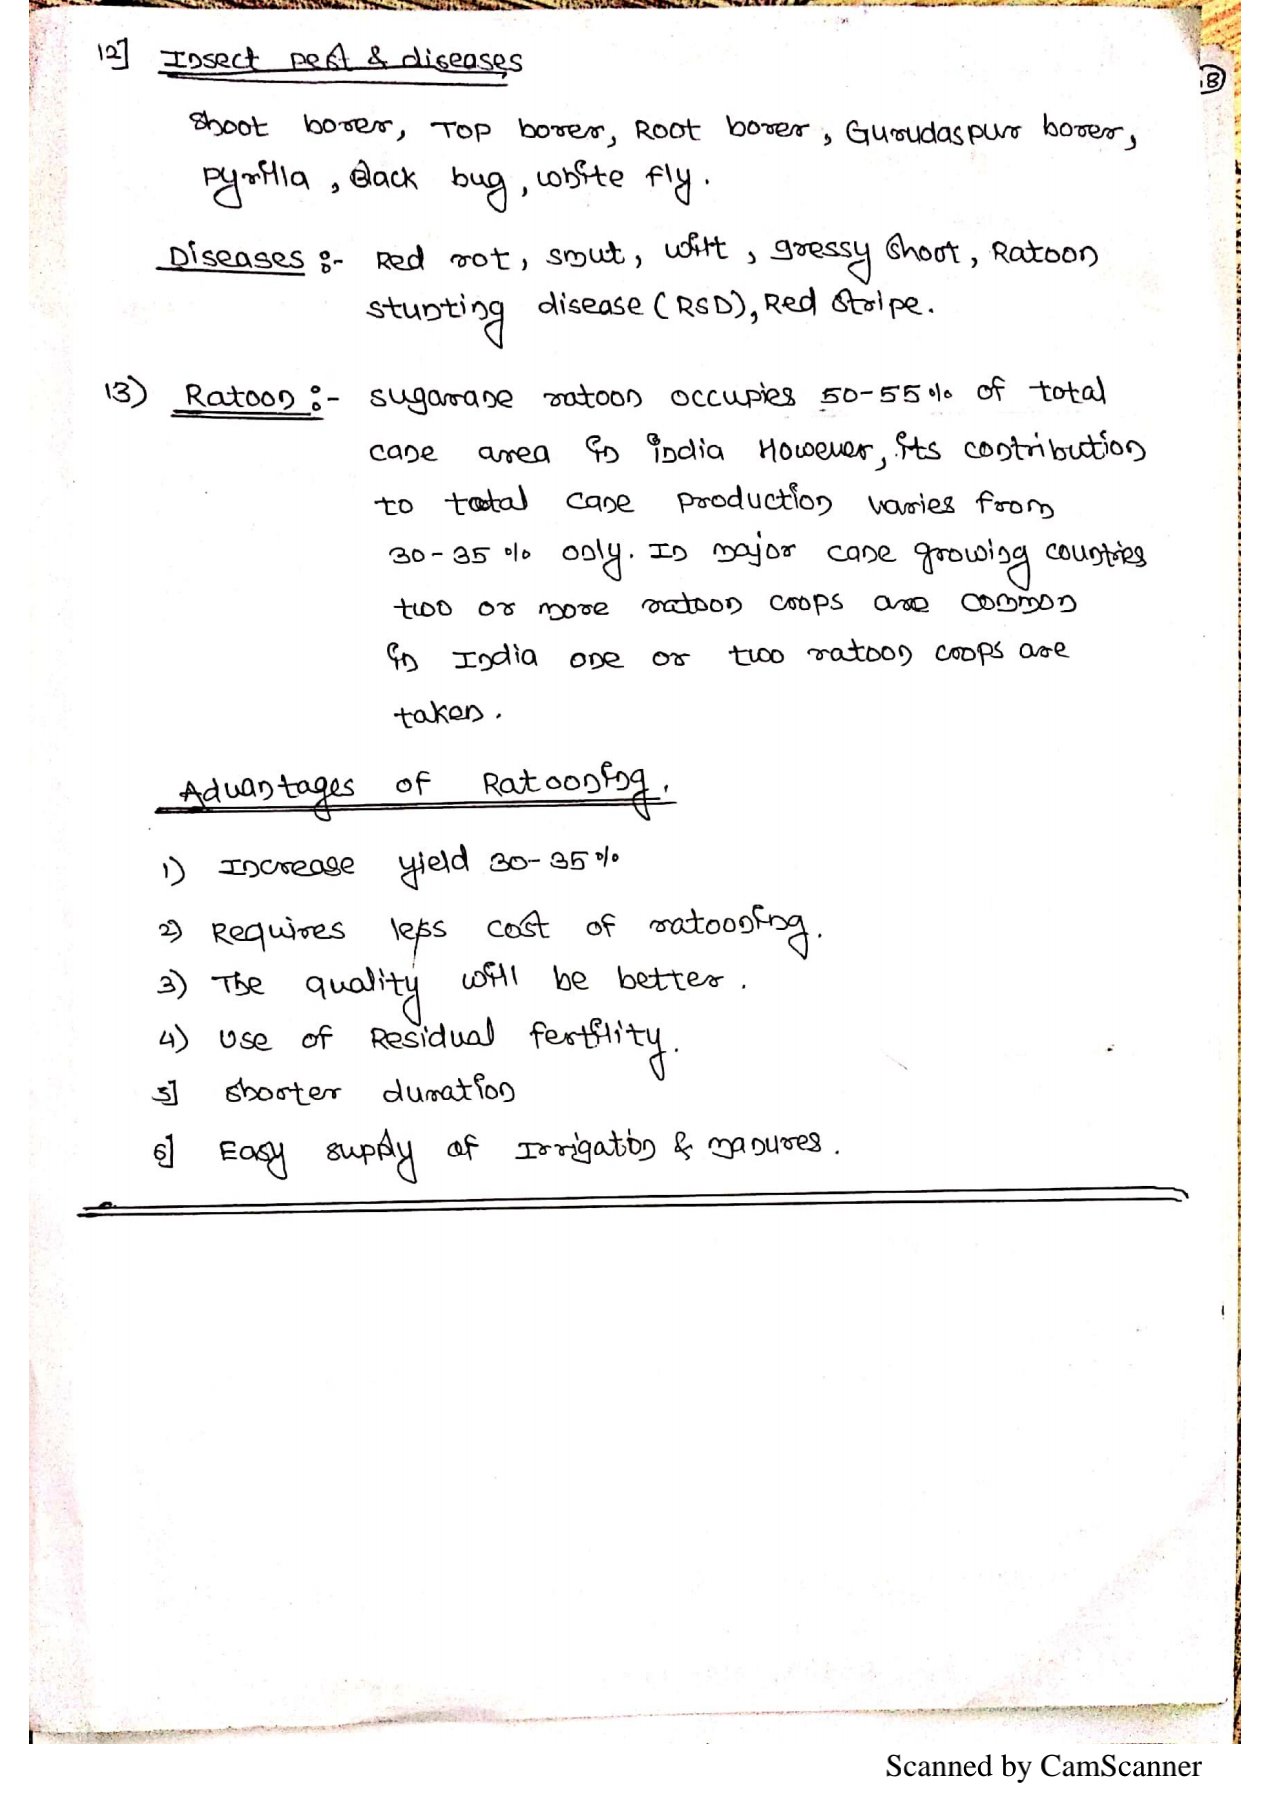 12] Insect pest & diseases
18
Shoot borer, Top borer, Root borer, Gurudaspur borer,
Pyrilla, Black bug, white fly.
Diseases :- Red rot, smut, wilt, gressy shoot, Ratoon
stunting disease (RSD), Red Stripe.
13) Ratoon :- sugarcane ratoon occupies 50-55% of total
cane area in india However, its contribution
to total cane production varies from
30-35% only. In major cane growing countries
two or more ratoon crops are common
in India one or two ratoon crops are
taken.
Advantages of Ratooning.
1) Increase yield 30-35%
2) Requires less cost of ratooning.
3) The quality will be better.
4) Use of Residual fertility.
5] shorter duration
6] Easy supply of Irrigation & manures.
Scanned by CamScanner